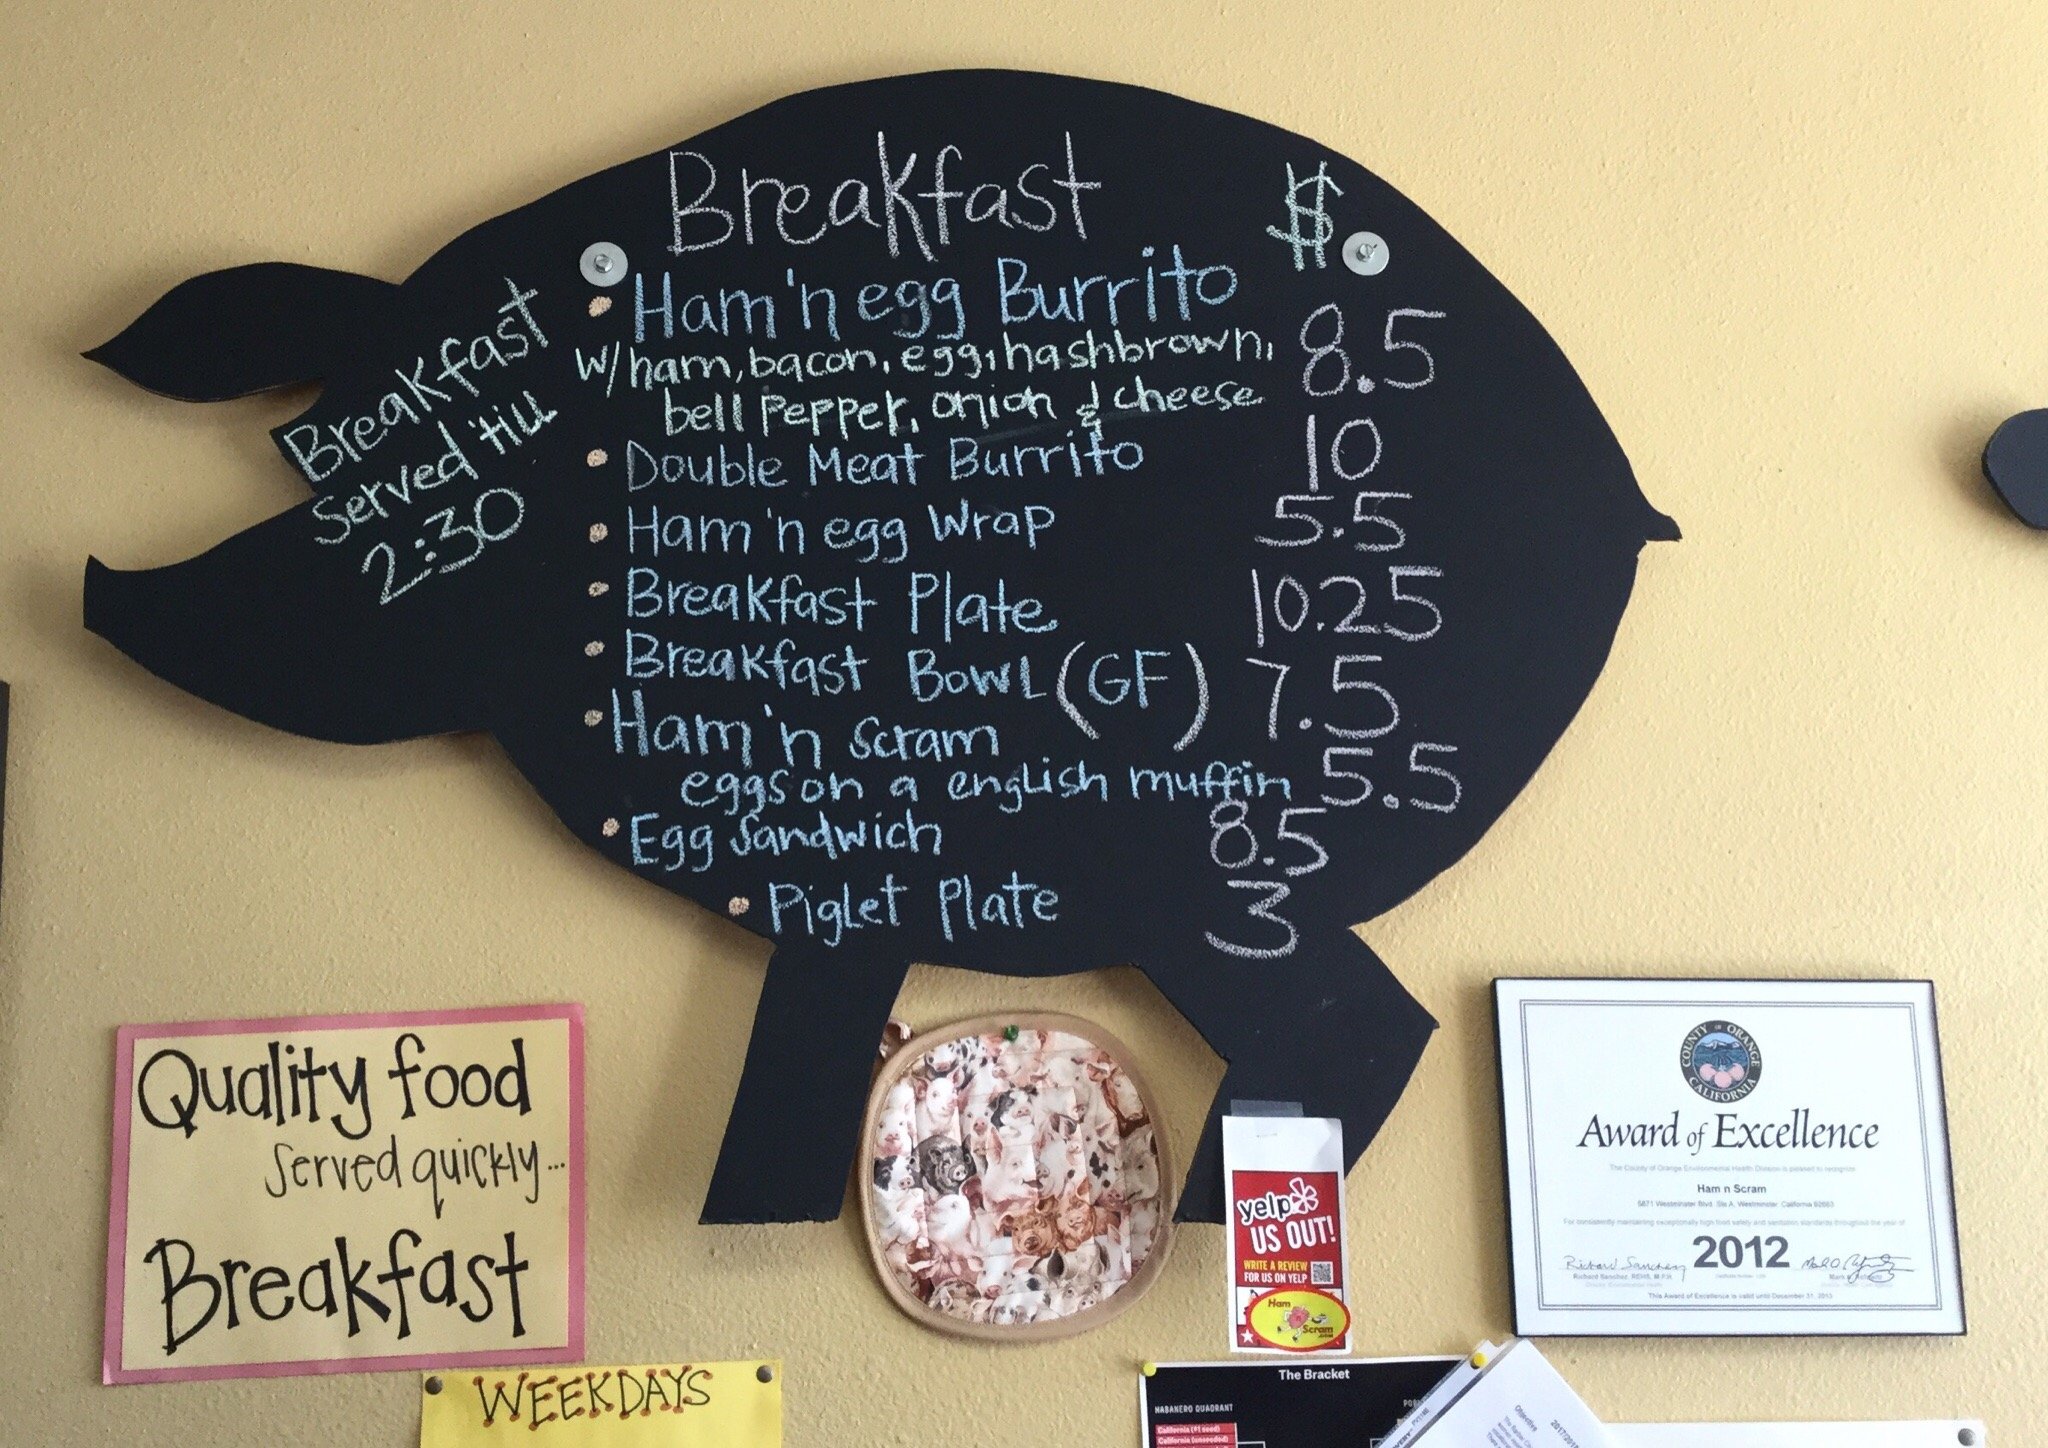 Breakfast $
Breakfast
Served 'till
2:30
• Ham 'n egg Burrito 8.5
w/ham, bacon, egg, hashbrown,
bell pepper, onion & cheese
• Double Meat Burrito 10
• Ham 'n egg Wrap 5.5
• Breakfast Plate 10.25
• Breakfast Bowl (GF) 7.5
• Ham 'n Scram
eggs on a english muffin 5.5
• Egg Sandwich 8.5
• Piglet Plate 3
Quality food
served quickly...
Breakfast
WEEKDAYS
yelp
US OUT!
WRITE A REVIEW
FOR US ON YELP
Ham
n
Scram
.com
COUNTY OF ORANGE
CALIFORNIA
Award of Excellence
The County of Orange Environmental Health Division is pleased to recognize
Ham n Scram
Westminster Blvd. Ste A, Westminster, California
For consistently maintaining exceptionally high food safety and sanitation standards throughout the year of
2012
Richard Sanchez, REHS, M.P.H.
This Award of Excellence is valid until December 31, 2013
The Bracket
HABANERO QUADRANT
California (#1 seed)
California (unseeded)
Objective